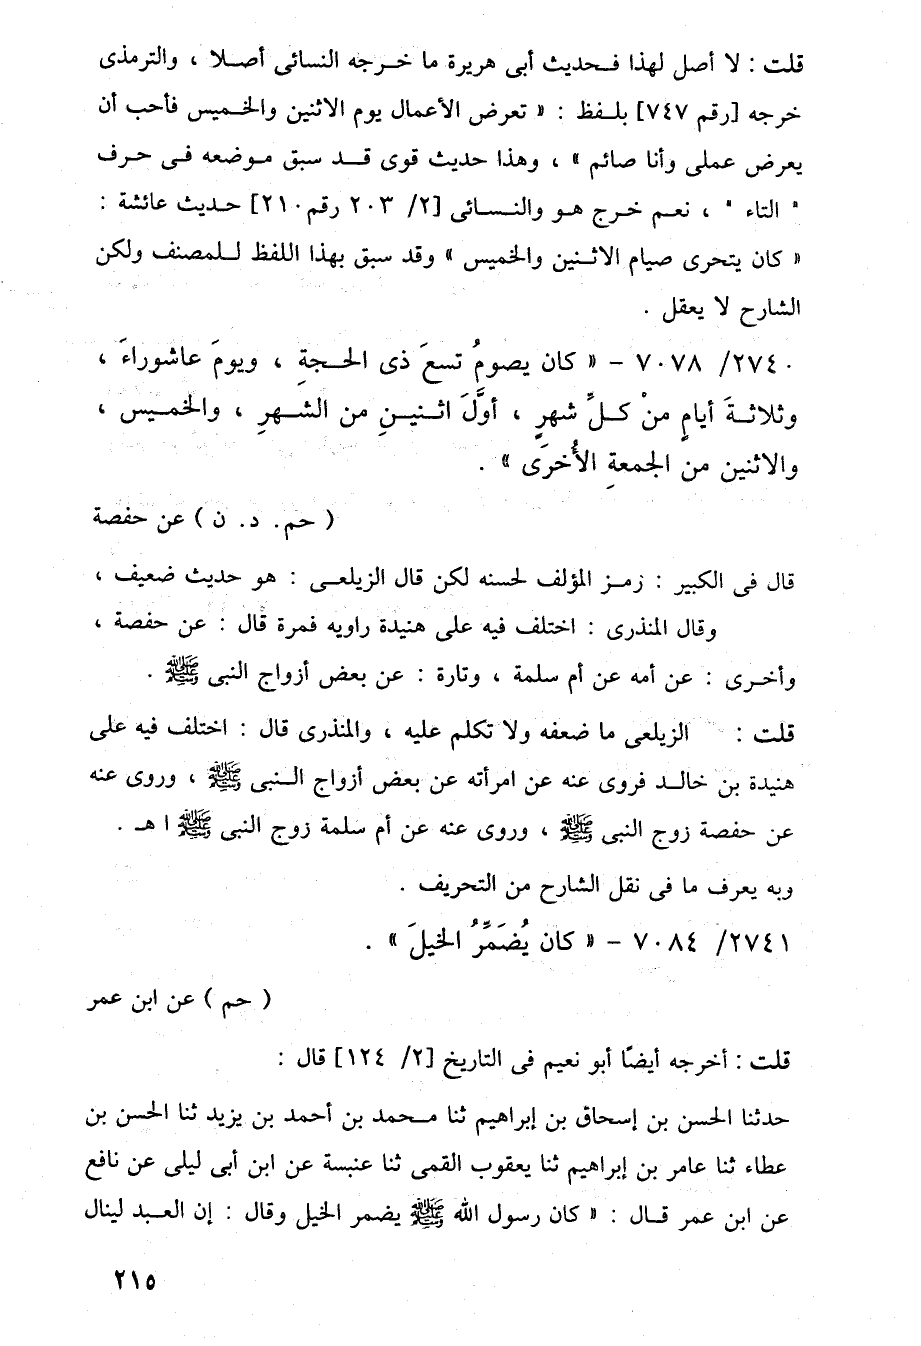 قلت : لا أصل لهذا فـحديث أبى هريرة ما خـرجه النسائى أصـلا ، والترمذى
خرجه [رقم ٧٤٧] بلـفظ : « تعرض الأعمال يوم الاثنين والخـميس فأحب أن
يعرض عملى وأنا صائم » ، وهذا حديث قوى قـد سبق موضعه فى حرف
" التاء " ، نعـم خرج هـو والنـسائى [٢/ ٢٠٣ رقم ٢١٠] حـديث عائشة :
« كان يتحرى صيام الاثـنين والخميس » وقد سبق بهذا اللفظ لـلمصنف ولكن
الشارح لا يعقل .
٢٧٤٠/ ٧٠٧٨ – « كان يصومُ تسعَ ذى الحـجةِ ، ويومَ عاشوراءَ ،
وثلاثـةَ أيامٍ منْ كـلِّ شهرٍ ، أولَّ اثـنيـنِ من الشـهرِ ، والخمـيس ،
والاثنين من الجمعةِ الأُخرَى » .
( حم. د. ن ) عن حفصة
قال فى الكبير : رمـز المؤلف لحسنه لكن قال الزيلعـى : هو حديث ضعيف ،
وقال المنذرى : اختلف فيه على هنيدة راويه فمرة قال : عن حفصة ،
وأخـرى : عن أمه عن أم سلمة ، وتارة : عن بعض أزواج النبى ﷺ .
قلت : الزيلعى ما ضعفه ولا تكلم عليه ، والمنذرى قال : اختلف فيه على
هنيدة بن خالـد فروى عنه عن امرأته عن بعض أزواج الـنبى ﷺ ، وروى عنه
عن حفصة زوج النبى ﷺ ، وروى عنه عن أم سلمة زوج النبى ﷺ ا هـ .
وبه يعرف ما فى نقل الشارح من التحريف .
٢٧٤١/ ٧٠٨٤ – « كان يُضَمِّرُ الخيلَ » .
( حم ) عن ابن عمر
قلت : أخرجه أيضًا أبو نعيم فى التاريخ [٢/ ١٢٤] قال :
حدثنا الحسن بن إسحاق بن إبراهيم ثنا مـحمد بن أحمد بن يزيد ثنا الحسن بن
عطاء ثنا عامر بن إبراهيم ثنا يعقوب القمى ثنا عنبسة عن ابن أبى ليلى عن نافع
عن ابن عمر قـال : « كان رسول الله ﷺ يضمر الخيل وقال : إن العـبد لينال
٢١٥